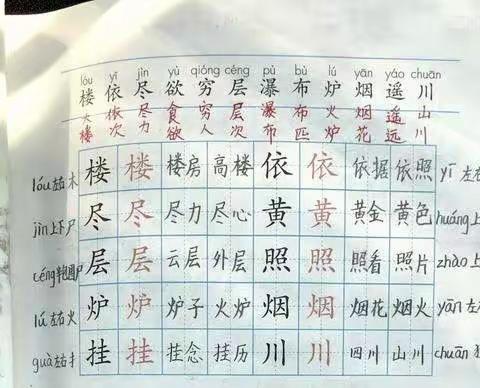 lóu yī jìn yù qióng céng pù bù lú yān yáo chuān
楼 依 尽 欲 穷 层 瀑 布 炉 烟 遥 川
大楼 依次 尽力 食欲 穷人 层次 瀑布 布匹 火炉 烟花 遥远 山川
lóu 左右 木 楼 楼 楼房 高楼 依 依 依据 依照 yī 左右
jìn 上下 尸 尽 尽 尽力 尽心 黄 黄 黄金 黄色 huáng 上
céng 半包围 尸 层 层 云层 外层 照 照 照看 照片 zhào 上
lú 左右 火 炉 炉 炉子 火炉 烟 烟 烟花 烟火 yān 左
guà 左右 扌 挂 挂 挂念 挂历 川 川 四川 山川 chuān 独